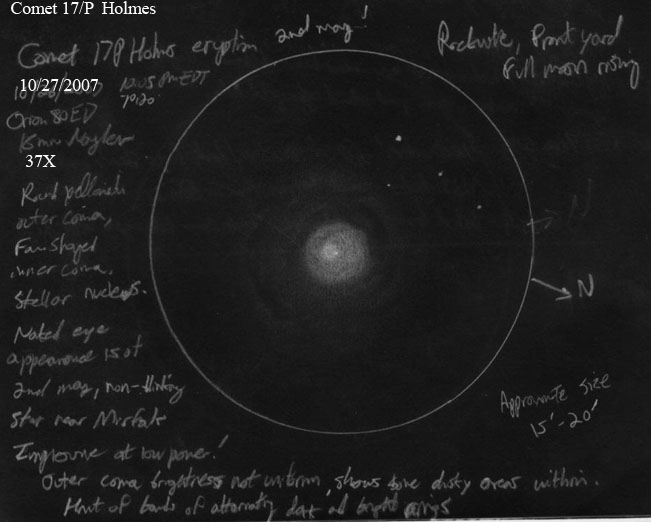 Comet 17/P Holmes
Comet 17P Holmes eruption
2nd mag!
Rockvale, Front yard
Full moon rising
10/27/2007
PM EDT
Orion 80ED
15mm Nagler
37X
Round yellowish
outer coma,
Fan shaped
inner coma.
Stellar nucleus.
Naked eye
appearance is of
2nd mag, non-
star near Mirfak
Impressive at low power!
N
N
Approximate size
15'-20'
Outer coma brightness not uniform, shows some dusty areas within.
Hint of bands of alternating dark and bright rings